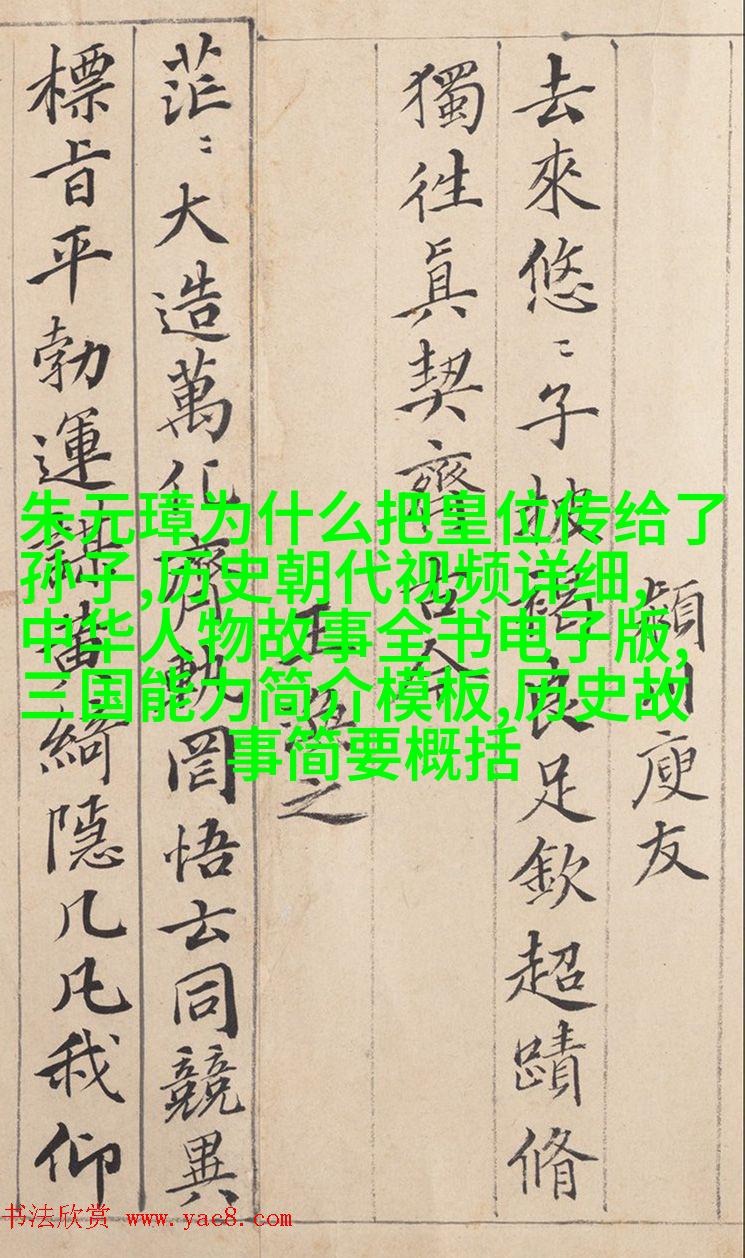 潁川庾友
去來悠〻子披褐良足欽超蹟脩
獨徃眞契齊古今
王渙之
茫〻大造萬化齊軌罔悟玄同競異
標旨平勃運謀黃綺隱几凡我仰
朱元璋为什么把皇位传给了
孙子,历史朝代视频详细,
中华人物故事全书电子版,
三国能力简介模板,历史故
事简要概括
书法欣赏 www.yac8.com